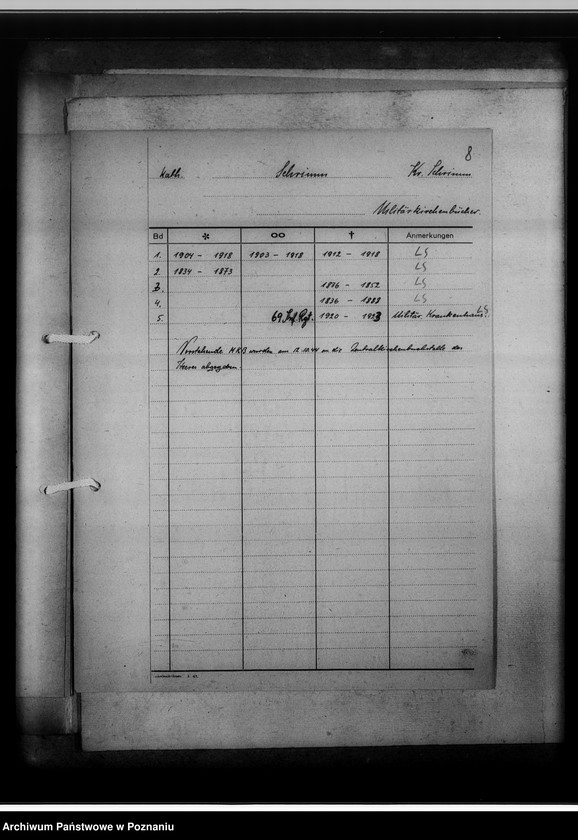 8
kath. Schrimm Kr. Schrimm
Militärkirchenbücher.
Bd * ∞ † Anmerkungen
1. 1904 - 1918 1903 - 1918 1912 - 1918 LS
2. 1834 - 1873 LS
3. 1836 - 1852 LS
4. 1836 - 1888 LS
5. 69. Inf. Rgt. 1920 - 1923 Militär. Krankenhaus LS
Vorstehende MKB wurden am 12.10.44 an die Zentralkirchenbuchstelle des
Heeres abgegeben.
Archiwum Państwowe w Poznaniu